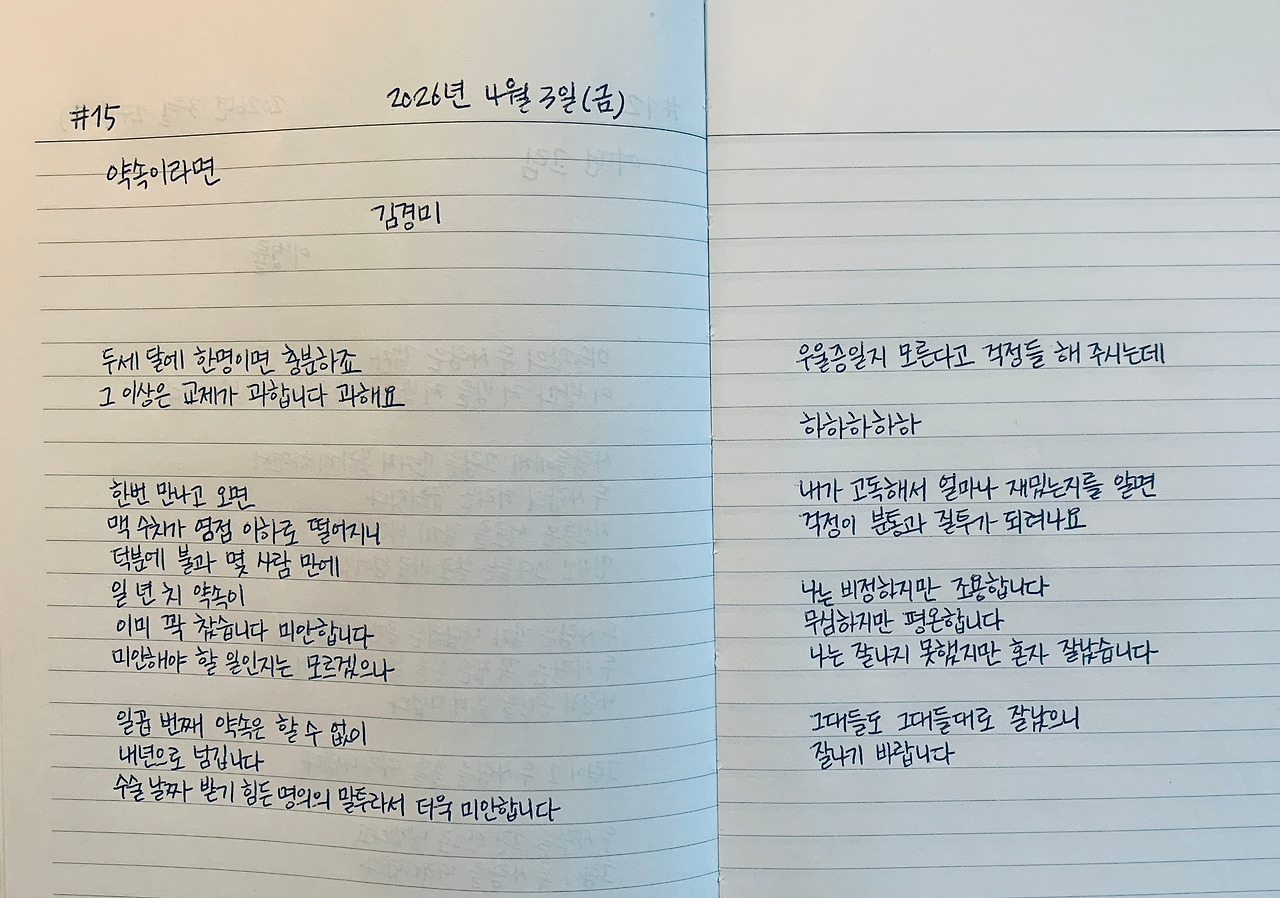 #15
2026년 4월 3일(금)
약속이라면
김경미
두세 달에 한명이면 충분하죠
그 이상은 교제가 과합니다 과해요
한번 만나고 오면
맥 수치가 영점 이하로 떨어지니
덕분에 불과 몇 사람 만에
일 년 치 약속이
이미 꽉 찼습니다 미안합니다
미안해야 할 일인지는 모르겠으나
일곱 번째 약속은 할 수 없이
내년으로 넘깁니다
수술 날짜 받기 힘든 명의의 말투라서 더욱 미안합니다
우울증일지 모른다고 걱정들 해 주시는데
하하하하하
내가 고독해서 얼마나 재밌는지를 알면
걱정이 분통과 질투가 되려나요
나는 비정하지만 조용합니다
무심하지만 평온합니다
나는 잘나지 못했지만 혼자 잘났습니다
그대들도 그대들대로 잘났으니
잘나기 바랍니다